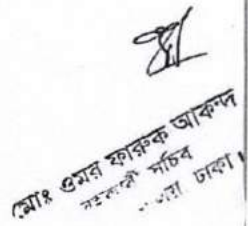 মোঃ ওমর ফারুক আকন্দ
সহকারী সচিব
ঢাকা।